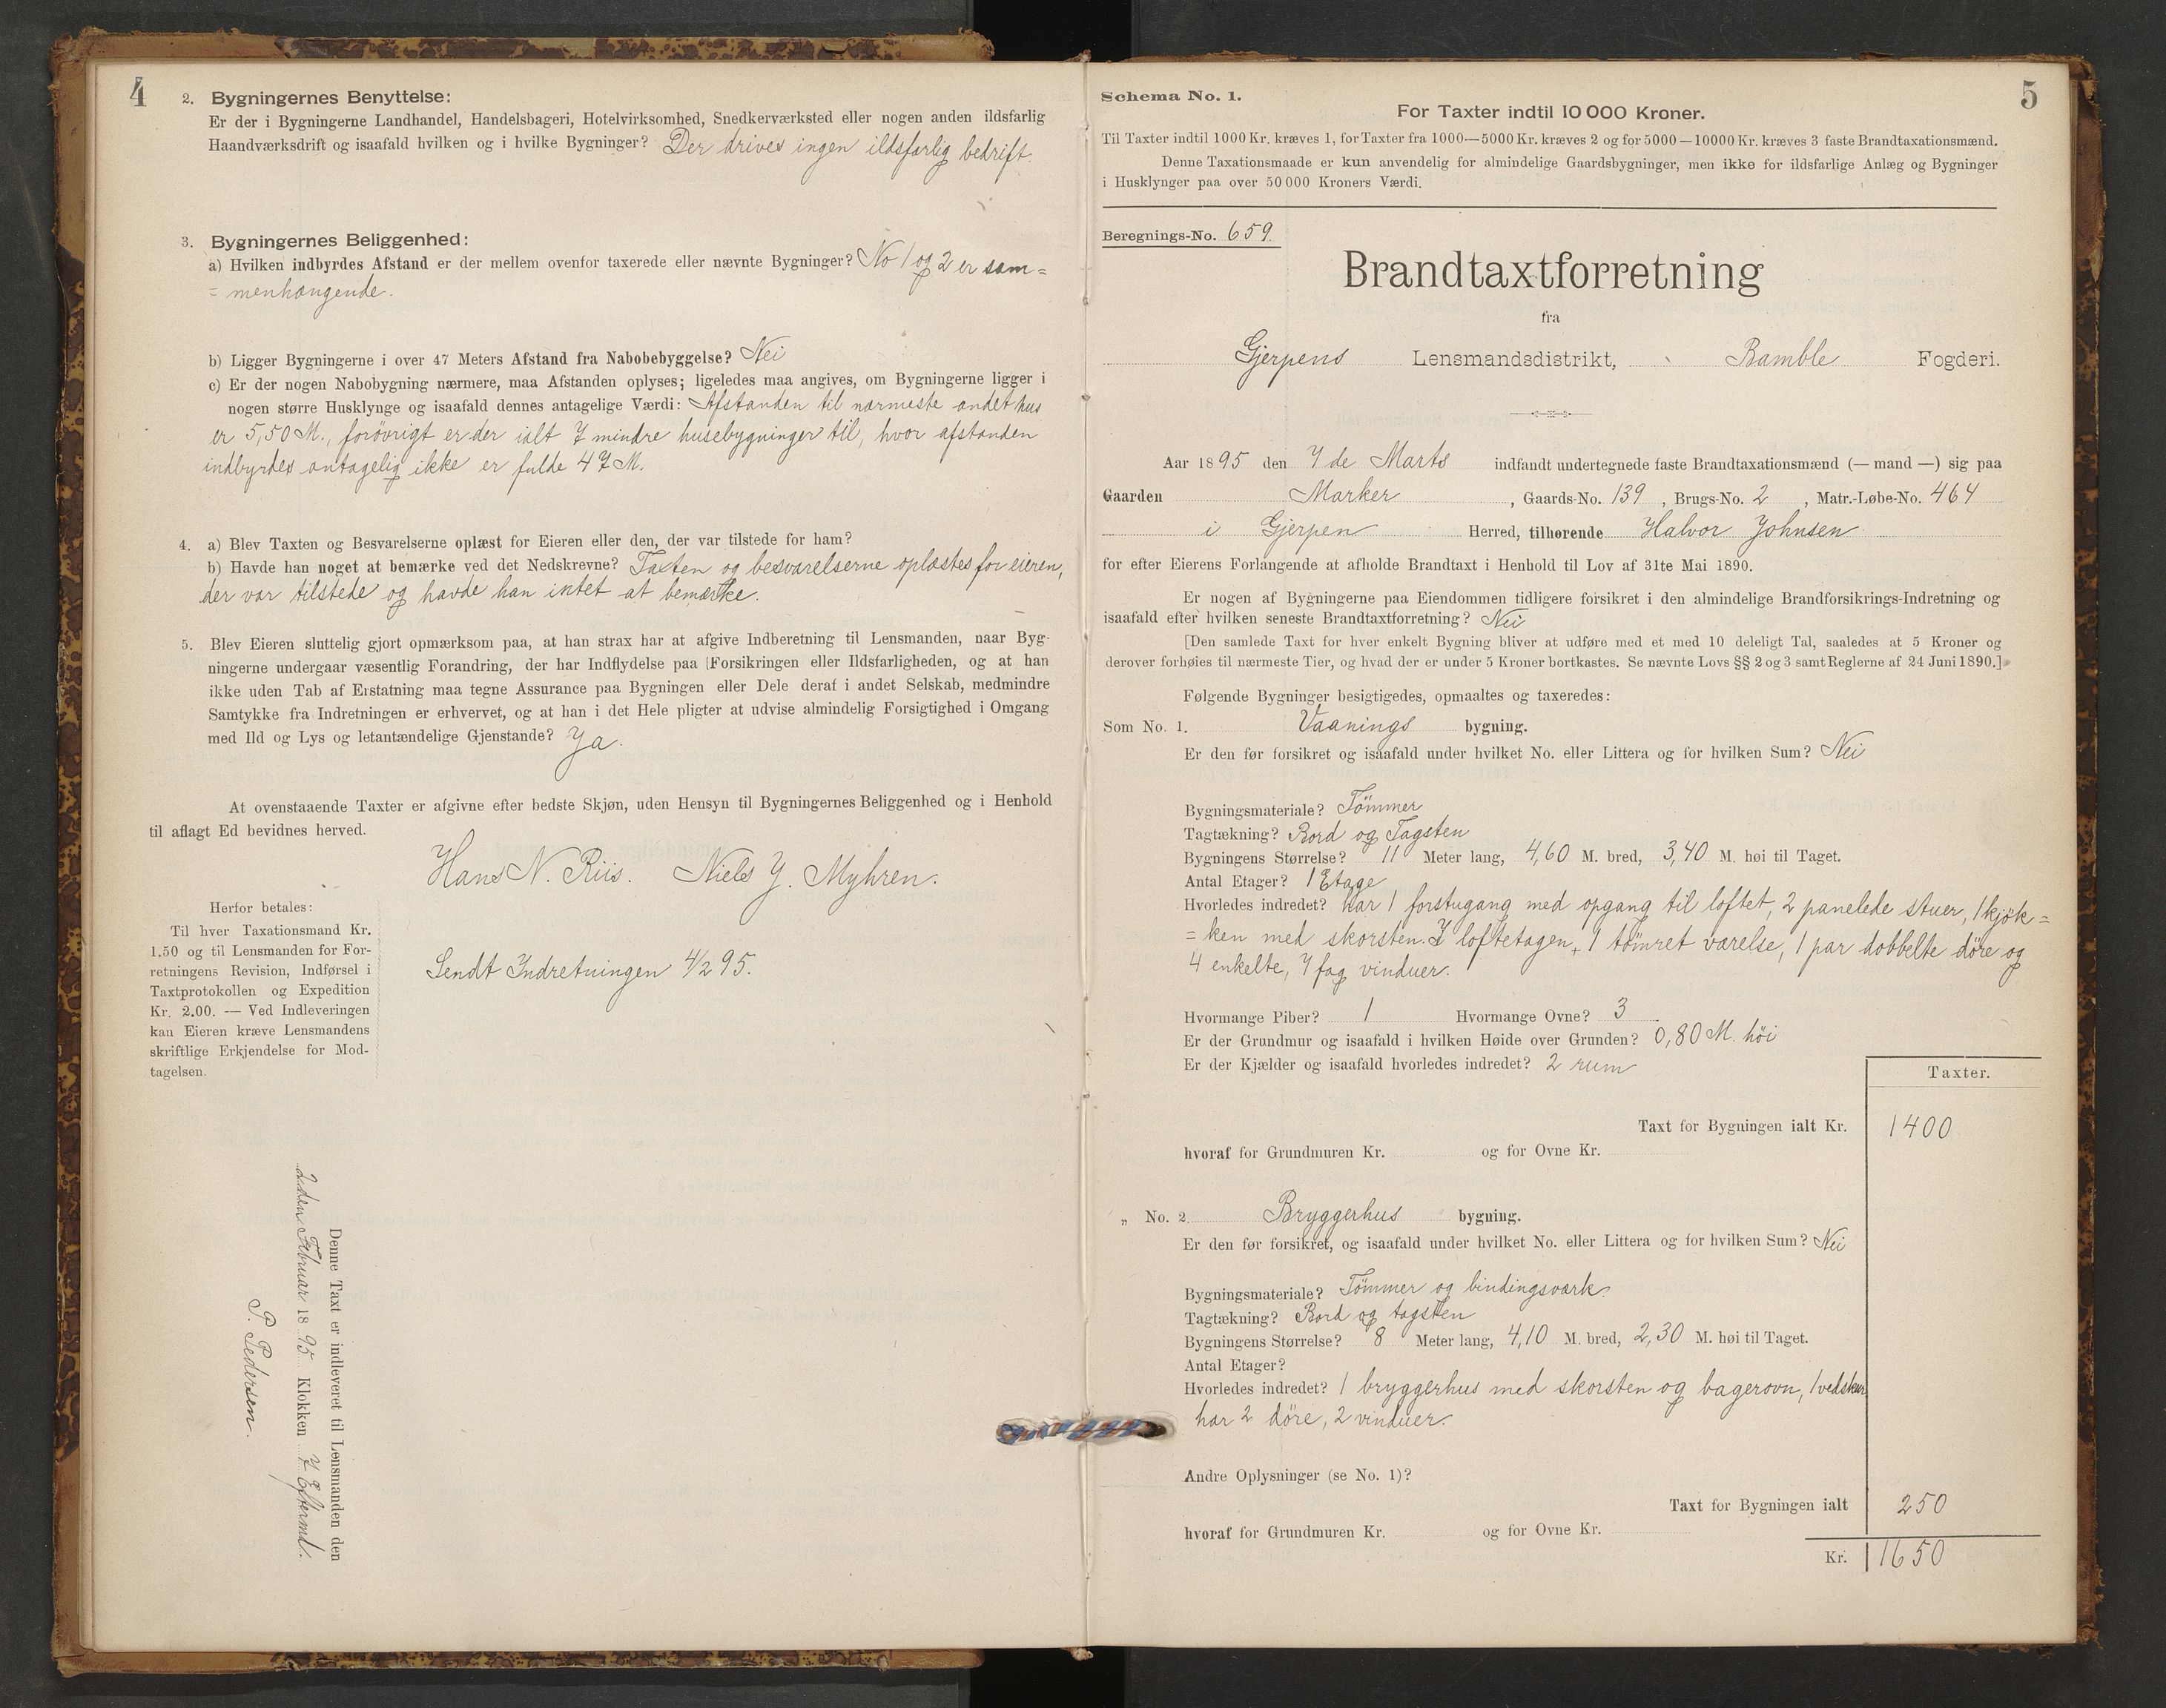 4
2. Bygningernes Benyttelse:
Er der i Bygningerne Landhandel, Handelsbageri, Hotelvirksomhed, Snedkerværksted eller nogen anden ildsfarlig
Haandværksdrift og isaafald hvilken og i hvilke Bygninger? Der drives ingen ildsfarlig bedrift.
3. Bygningernes Beliggenhed:
a) Hvilken indbyrdes Afstand er der mellem ovenfor taxerede eller nævnte Bygninger? No 1 og 2 er sam=
= menhængende.
b) Ligger Bygningerne i over 47 Meters Afstand fra Nabobebyggelse? Nei
c) Er der nogen Nabobygning nærmere, maa Afstanden oplyses; ligeledes maa angives, om Bygningerne ligger i
nogen større Husklynge og isaafald dennes antagelige Værdi: Afstanden til nærmeste andet hus
er 5,50 M., forøvrigt er der ialt 7 mindre husebygninger til, hvor afstanden
indbyrdes antagelig ikke er fulde 47 M.
4. a) Blev Taxten og Besvarelserne oplæst for Eieren eller den, der var tilstede for ham?
b) Havde han noget at bemærke ved det Nedskrevne? Taxten og besvarelserne oplæstes for eieren,
der var tilstede og havde han intet at bemærke.
5. Blev Eieren sluttelig gjort opmærksom paa, at han strax har at afgive Indberetning til Lensmanden, naar Byg-
ningerne undergaar væsentlig Forandring, der har Indflydelse paa [Forsikringen eller Ildsfarligheden, og at han
ikke uden Tab af Erstatning maa tegne Assurance paa Bygningen eller Dele deraf i andet Selskab, medmindre
Samtykke fra Indretningen er erhvervet, og at han i det Hele pligter at udvise almindelig Forsigtighed i Omgang
med Ild og Lys og letantændelige Gjenstande? Ja.
At ovenstaaende Taxter er afgivne efter bedste Skjøn, uden Hensyn til Bygningernes Beliggenhed og i Henhold
til aflagt Ed bevidnes herved.
Hans N. Riis. Niels J. Myhren.
Herfor betales:
Til hver Taxationsmand Kr.
1.50 og til Lensmanden for For-
retningens Revision, Indførsel i
Taxtprotokollen og Expedition
Kr. 2.00. — Ved Indleveringen
kan Eieren kræve Lensmandens
skriftlige Erkjendelse for Mod-
tagelsen.
Sendt Indretningen 4/2 95.
Denne Taxt er indleveret til Lensmanden den
2den Februar 1895 Klokken 7 Eftermd.
P. Pedersen.
Schema No. 1.
5
For Taxter indtil 10 000 Kroner.
Til Taxter indtil 1000 Kr. kræves 1, for Taxter fra 1000—5000 Kr. kræves 2 og for 5000—10000 Kr. kræves 3 faste Brandtaxationsmænd.
Denne Taxationsmaade er kun anvendelig for almindelige Gaardsbygninger, men ikke for ildsfarlige Anlæg og Bygninger
i Husklynger paa over 50 000 Kroners Værdi.
Beregnings-No. 659.
Brandtaxtforretning
fra
Gjerpens Lensmandsdistrikt, Bamble Fogderi.
Aar 1895 den 7 de Marts indfandt undertegnede faste Brandtaxationsmænd (— mand —) sig paa
Gaarden Marker, Gaards-No. 139, Brugs-No. 2, Matr.-Løbe-No. 464
i Gjerpen Herred, tilhørende Halvor Johnsen
for efter Eierens Forlangende at afholde Brandtaxt i Henhold til Lov af 31te Mai 1890.
Er nogen af Bygningerne paa Eiendommen tidligere forsikret i den almindelige Brandforsikrings-Indretning og
isaafald efter hvilken seneste Brandtaxtforretning? Nei
[Den samlede Taxt for hver enkelt Bygning bliver at udføre med et med 10 deleligt Tal, saaledes at 5 Kroner og
derover forhøies til nærmeste Tier, og hvad der er under 5 Kroner bortkastes. Se nævnte Lovs §§ 2 og 3 samt Reglerne af 24 Juni 1890.]
Følgende Bygninger besigtigedes, opmaaltes og taxeredes:
Som No. 1. Vaanings bygning.
Er den før forsikret og isaafald under hvilket No. eller Littera og for hvilken Sum? Nei
Bygningsmateriale? Tömmer
Tagtækning? Bord og Tagsten
Bygningens Størrelse? 11 Meter lang, 4,60 M. bred, 3,40 M. høi til Taget.
Antal Etager? 1 Etage
Hvorledes indredet? har 1 forstugang med opgang til loftet, 2 panelede stuer, 1 kjök=
= ken med skorsten. I loftetagen, 1 tömret værelse, 1 par dobbelte döre og
4 enkelte, 7 fag vinduer.
Hvormange Piber? 1 Hvormange Ovne? 3
Er der Grundmur og isaafald i hvilken Høide over Grunden? 0,80 M. höi
Er der Kjælder og isaafald hvorledes indredet? 2 rum
Taxter.
Taxt for Bygningen ialt Kr. 1400
hvoraf for Grundmuren Kr. og for Ovne Kr.
„ No. 2 Bryggerhus bygning.
Er den før forsikret, og isaafald under hvilket No. eller Littera og for hvilken Sum? Nei
Bygningsmateriale? Tömmer og bindingsværk.
Tagtækning? Bord og tagsten
Bygningens Størrelse? 8 Meter lang, 4,10 M. bred, 2,30 M. høi til Taget.
Antal Etager?
Hvorledes indredet? 1 bryggerhus med skorsten og bagerovn, 1 vedskur
har 2 döre, 2 vinduer.
Andre Oplysninger (se No. 1)?
Taxt for Bygningen ialt 250
hvoraf for Grundmuren Kr. og for Ovne Kr.
Kr. 1650